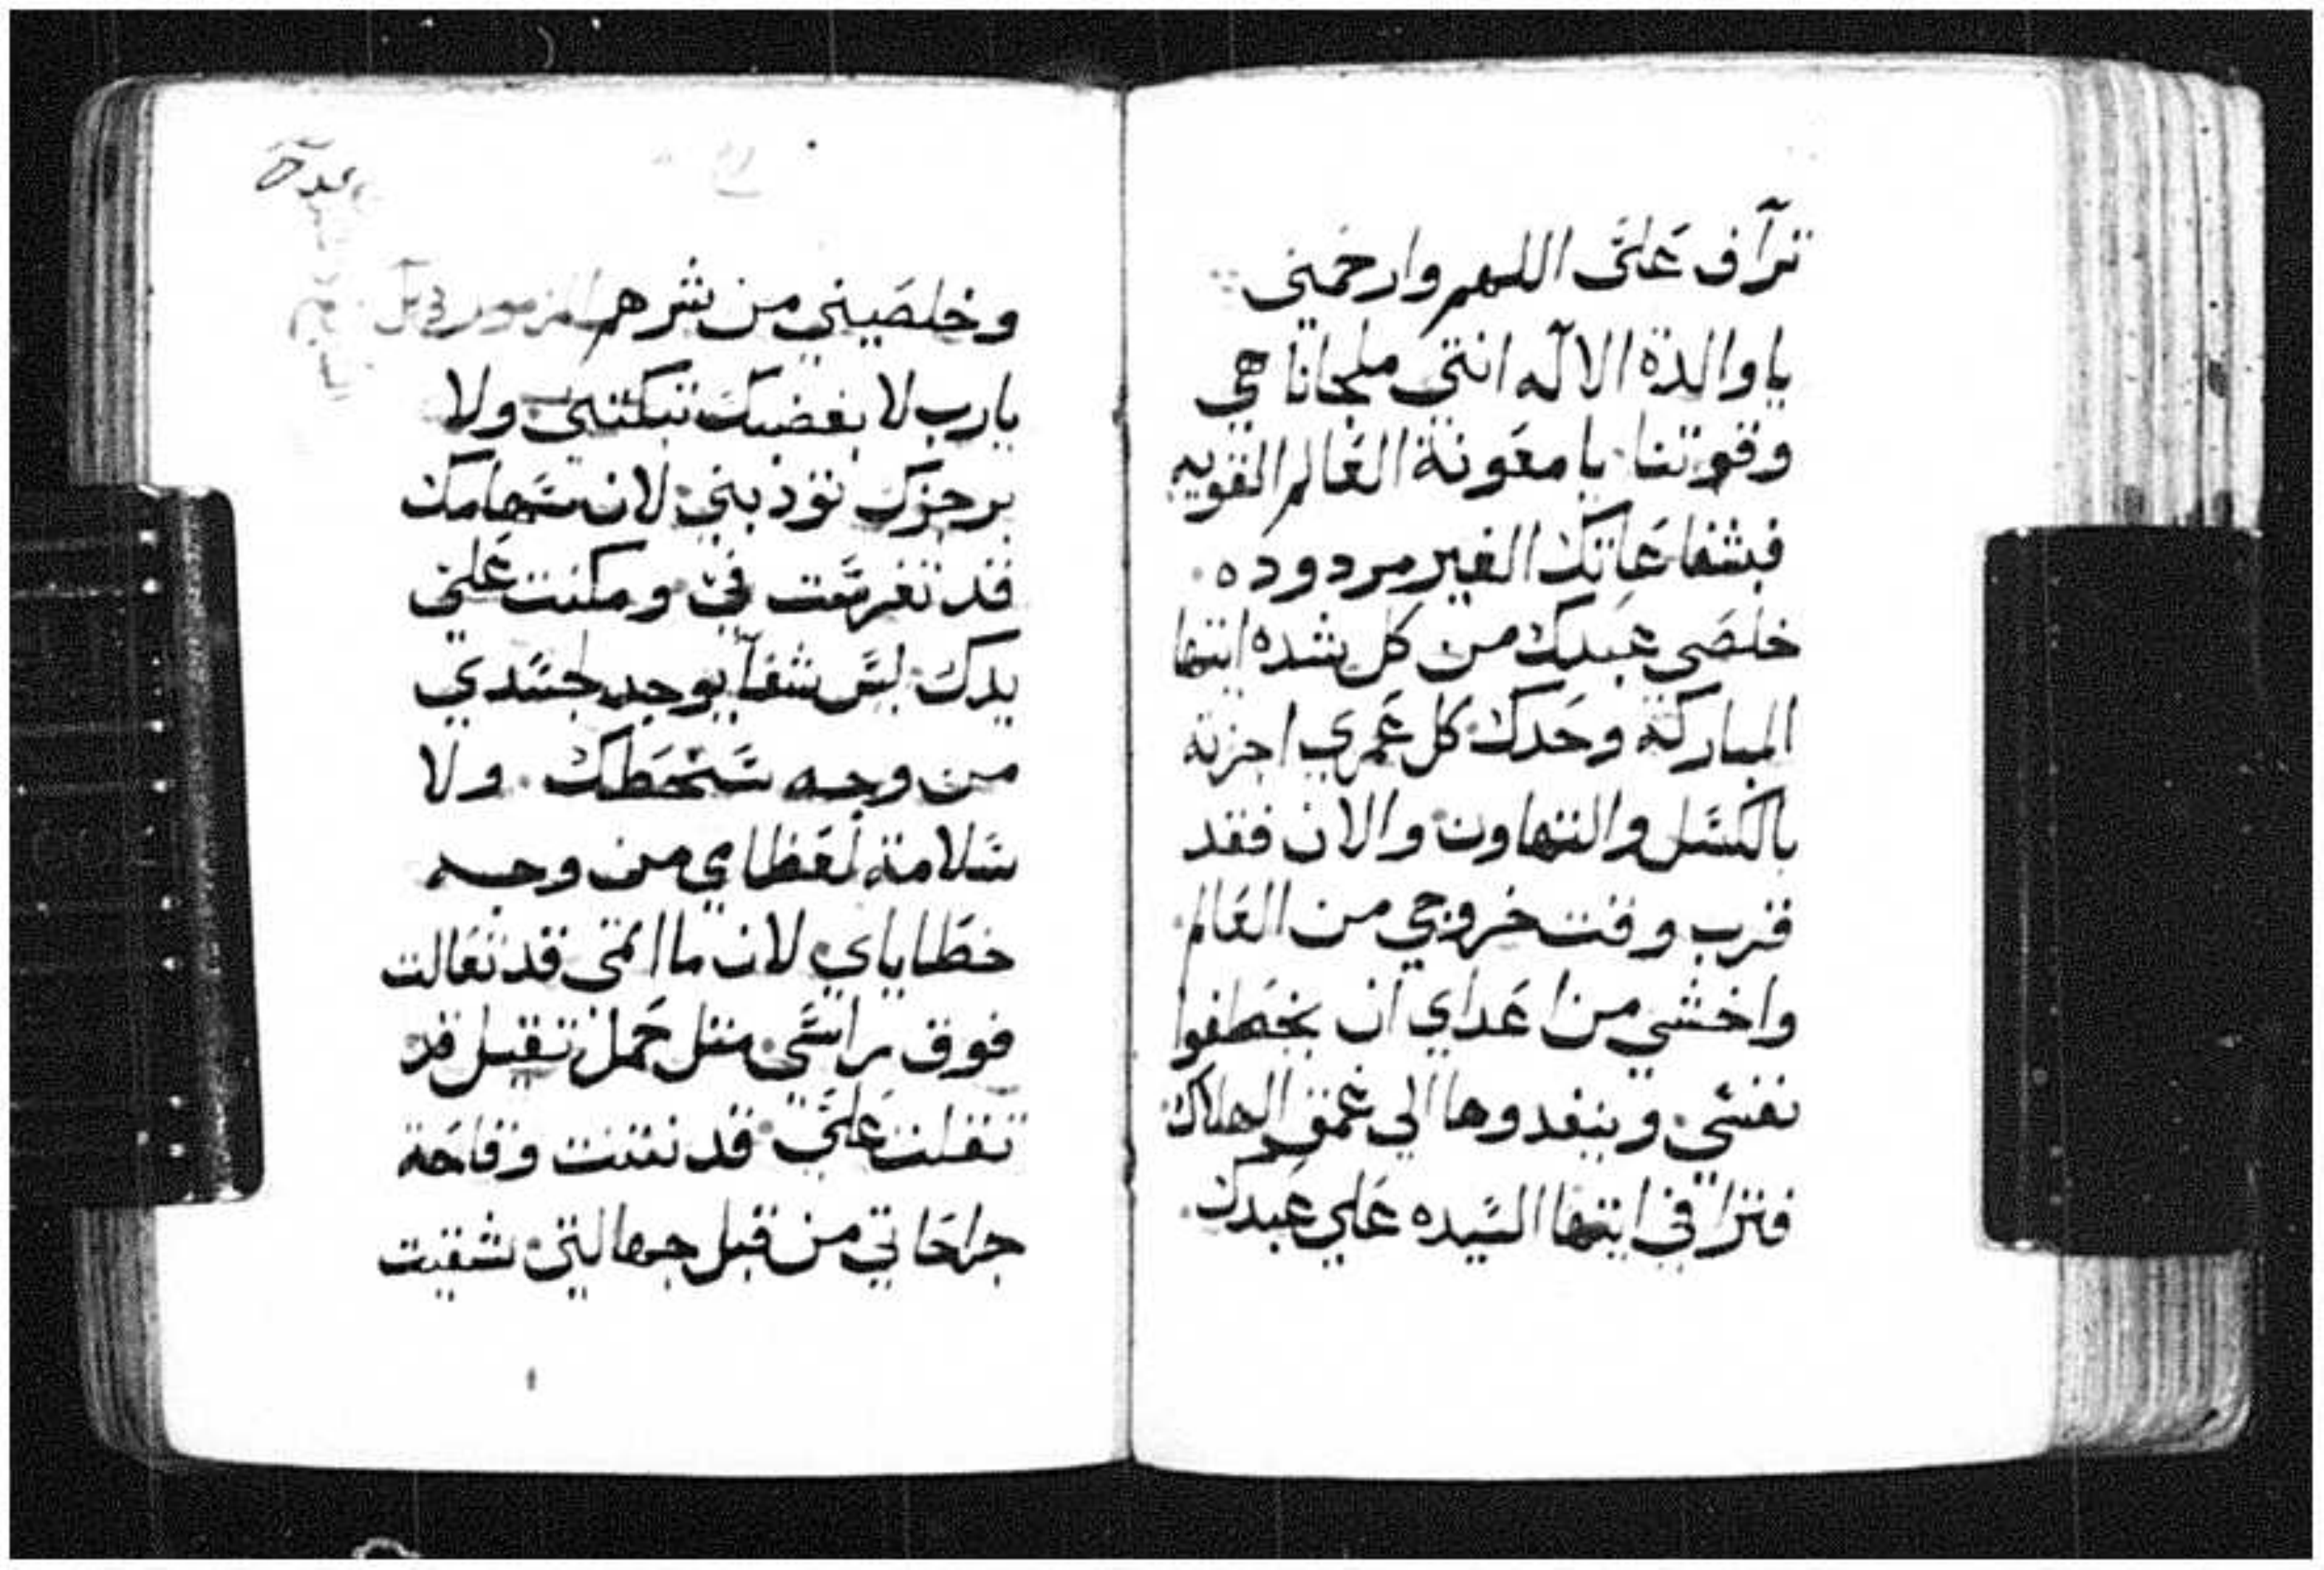 ترآف عَلىَّ اللهم وارحمني
يا والدة الاله انتي ملجانا حي
وقوتنا يا معَونة العَالم القويه
فبشفاعَاتك الغير مردوده
خلصَي عَبدك من كل شده ايتها
المباركة وحَدك كل عَمري اجزته
بالكسَل والتهاون والان فقد
قرب وقت خروجي من العَالم
واخشي من اعَداي ان يخطفوا
نفسَي وينفدوها الي عَمق الهلاك
فتراافي ايتها السَيده عَلي عَبدك
وخلصَيني من شرهم المزمور
يارب لا بغضبك تبكتني ولا
برجزك تودبني لان سَهامك
قد تغرسَت فيَّ ومكنت عَليَّ
يدك ليسَ شفآ يوجد لجسَدي
من وجه سَخَطك ولا
سَلامة لعَظامي من وجه
خطَاياي لان ما اتمي قد تعَالت
فوق راسَي متل حَمل تقيل قد
تقلت عَليَّ قد نتنت وقاحَة
جراحَاتي من قبل جهالتي شقيت